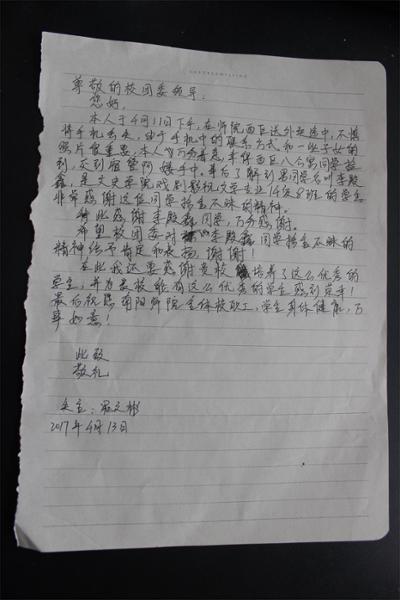 尊敬的校团委领导:
您好,
本人于4月11日下午,在师院西区送外卖途中,不慎
将手机丢失,由于手机中的联系方式和一些子女的
照片很重要,本人万分着急,幸得西区八公寓同学捡
到,交到宿管阿姨手中。事后了解到男同学名叫李殿
鑫,是文史学院戏剧影视文学专业14级8班的学生
非常感谢这位同学拾金不昧的精神。
特此感谢李殿鑫同学,万分感谢。
希望校团委对李殿鑫同学拾金不昧的
精神给予肯定和表扬,谢谢!
在此我还要感谢贵校培养了这么优秀的
学生,并为贵校能有这么优秀的学生感到荣幸!
最后祝愿南阳师院全体校职工,学生身体健康,万
事如意!
此致
敬礼
失主:文彬
2017年4月13日